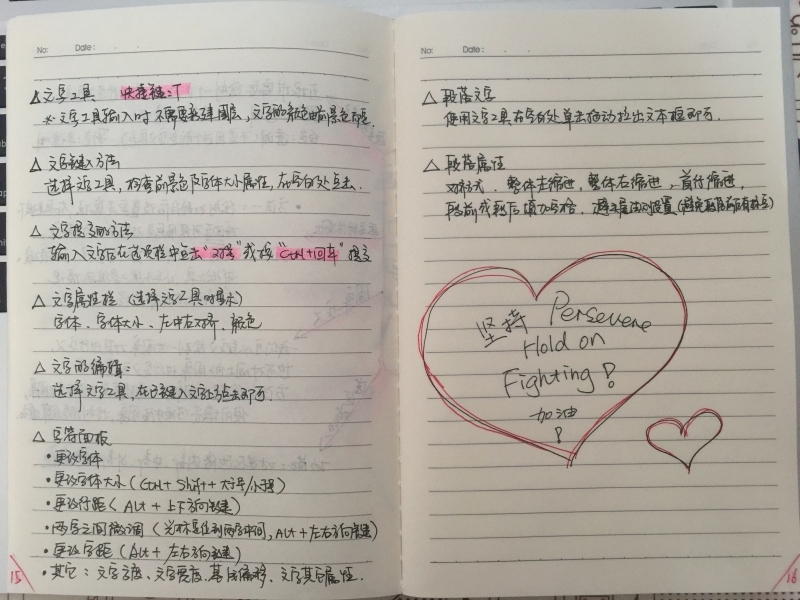 No: Date: . .
△文字工具 快捷键:T
※ 文字工具输入时不需要新建图层,文字的颜色由前景色决定
△文字键入方法
选择文字工具,检查前景色及字体大小属性,在空白处点击.
△文字提交的方法
输入文字后在选项栏中点击“对勾”或按“Ctrl+回车”提交
△文字属性栏(选择文字工具时显示)
字体、字体大小、左中右对齐、颜色
△文字的编辑:
选择文字工具,在已键入文字上点击即可.
△字符面板
·更改字体
·更改字体大小(Ctrl+Shift+大于号/小于号)
·更改行距(Alt+上下方向键)
·两字之间微调(光标定位到两字中间,Alt+左右方向键)
·更改字距(Alt+左右方向键)
·其它:文字高度、文字宽度、基线偏移、文字其它属性.
15
No: Date: . .
△段落文字
使用文字工具在空白处单击拖动拉出文本框即可.
△段落属性
对齐方式、整体左缩进,整体右缩进,首行缩进,
段前或段后添加空格、避头尾法则设置
坚持 Persevere
Hold on
Fighting!
加油
!
16